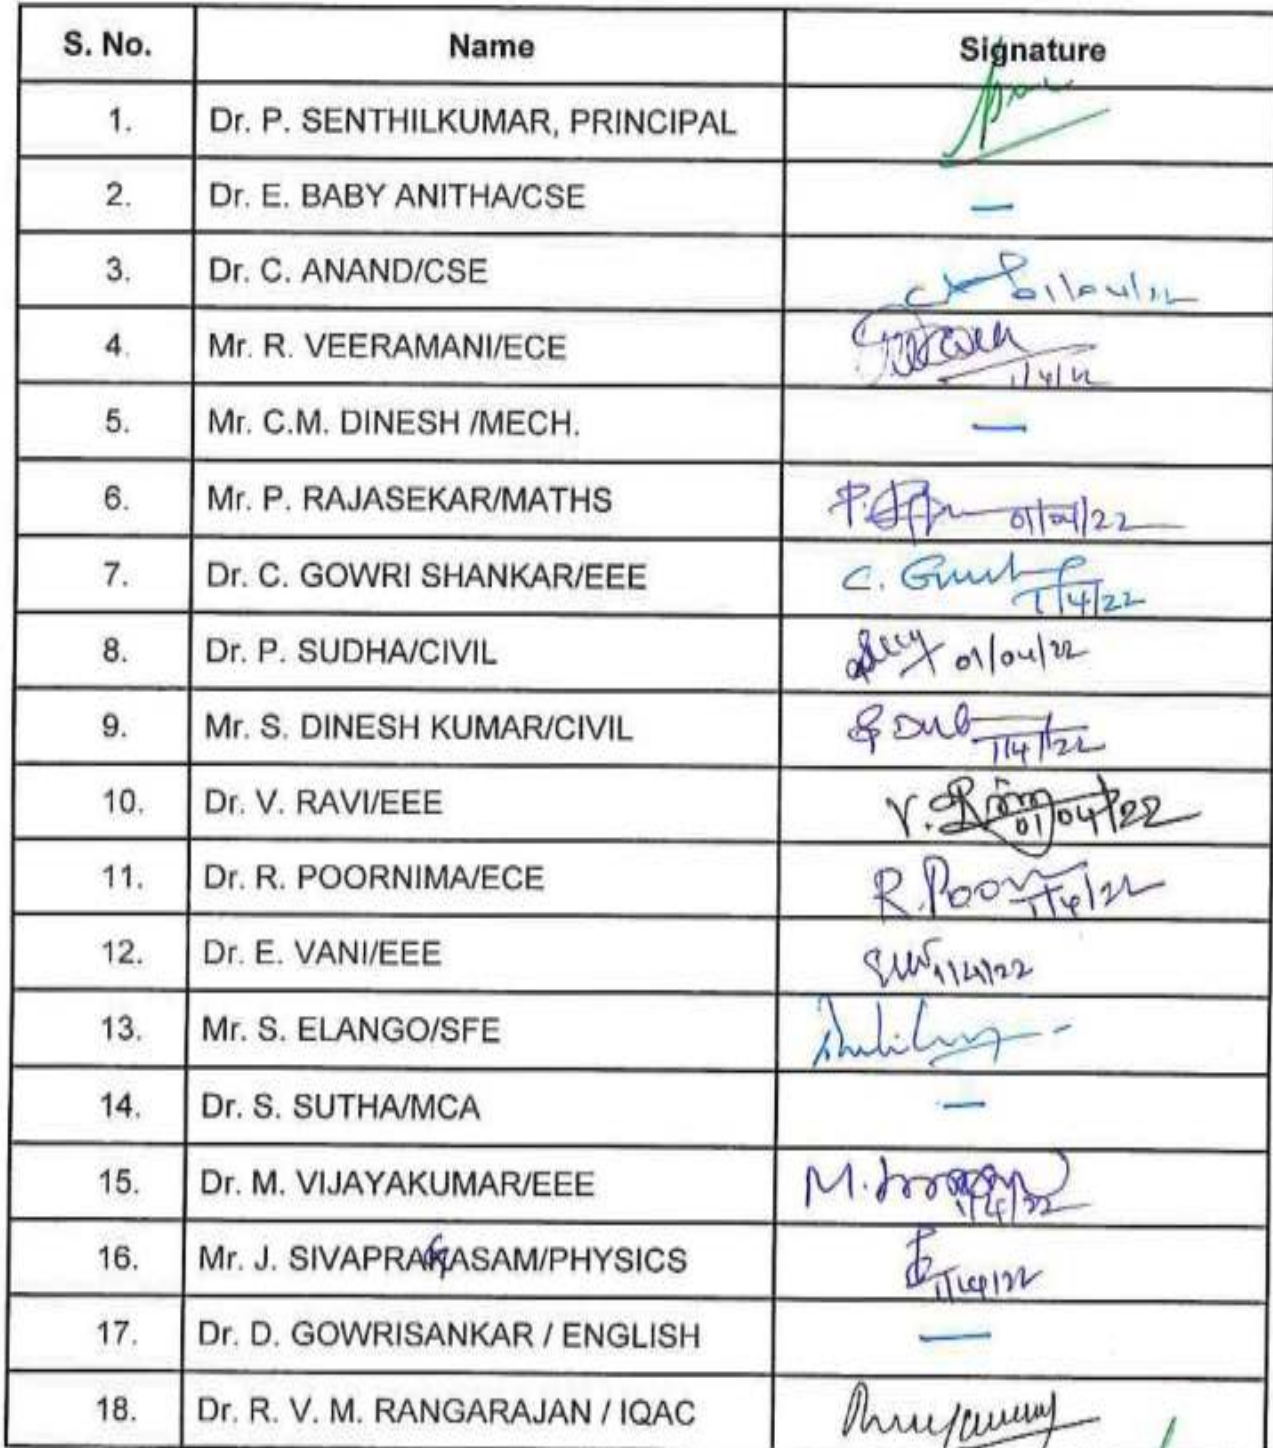 S. No. Name Signature
1. Dr. P. SENTHILKUMAR, PRINCIPAL
2. Dr. E. BABY ANITHA/CSE —
3. Dr. C. ANAND/CSE 01/04/22
4. Mr. R. VEERAMANI/ECE 1/4/22
5. Mr. C.M. DINESH /MECH. —
6. Mr. P. RAJASEKAR/MATHS P. 01/04/22
7. Dr. C. GOWRI SHANKAR/EEE C. 1/4/22
8. Dr. P. SUDHA/CIVIL 01/04/22
9. Mr. S. DINESH KUMAR/CIVIL 1/4/22
10. Dr. V. RAVI/EEE V. 01/04/22
11. Dr. R. POORNIMA/ECE R. Poor 1/4/22
12. Dr. E. VANI/EEE 1/4/22
13. Mr. S. ELANGO/SFE
14. Dr. S. SUTHA/MCA —
15. Dr. M. VIJAYAKUMAR/EEE M. 1/4/22
16. Mr. J. SIVAPRAGASAM/PHYSICS 1/4/22
17. Dr. D. GOWRISANKAR / ENGLISH —
18. Dr. R. V. M. RANGARAJAN / IQAC